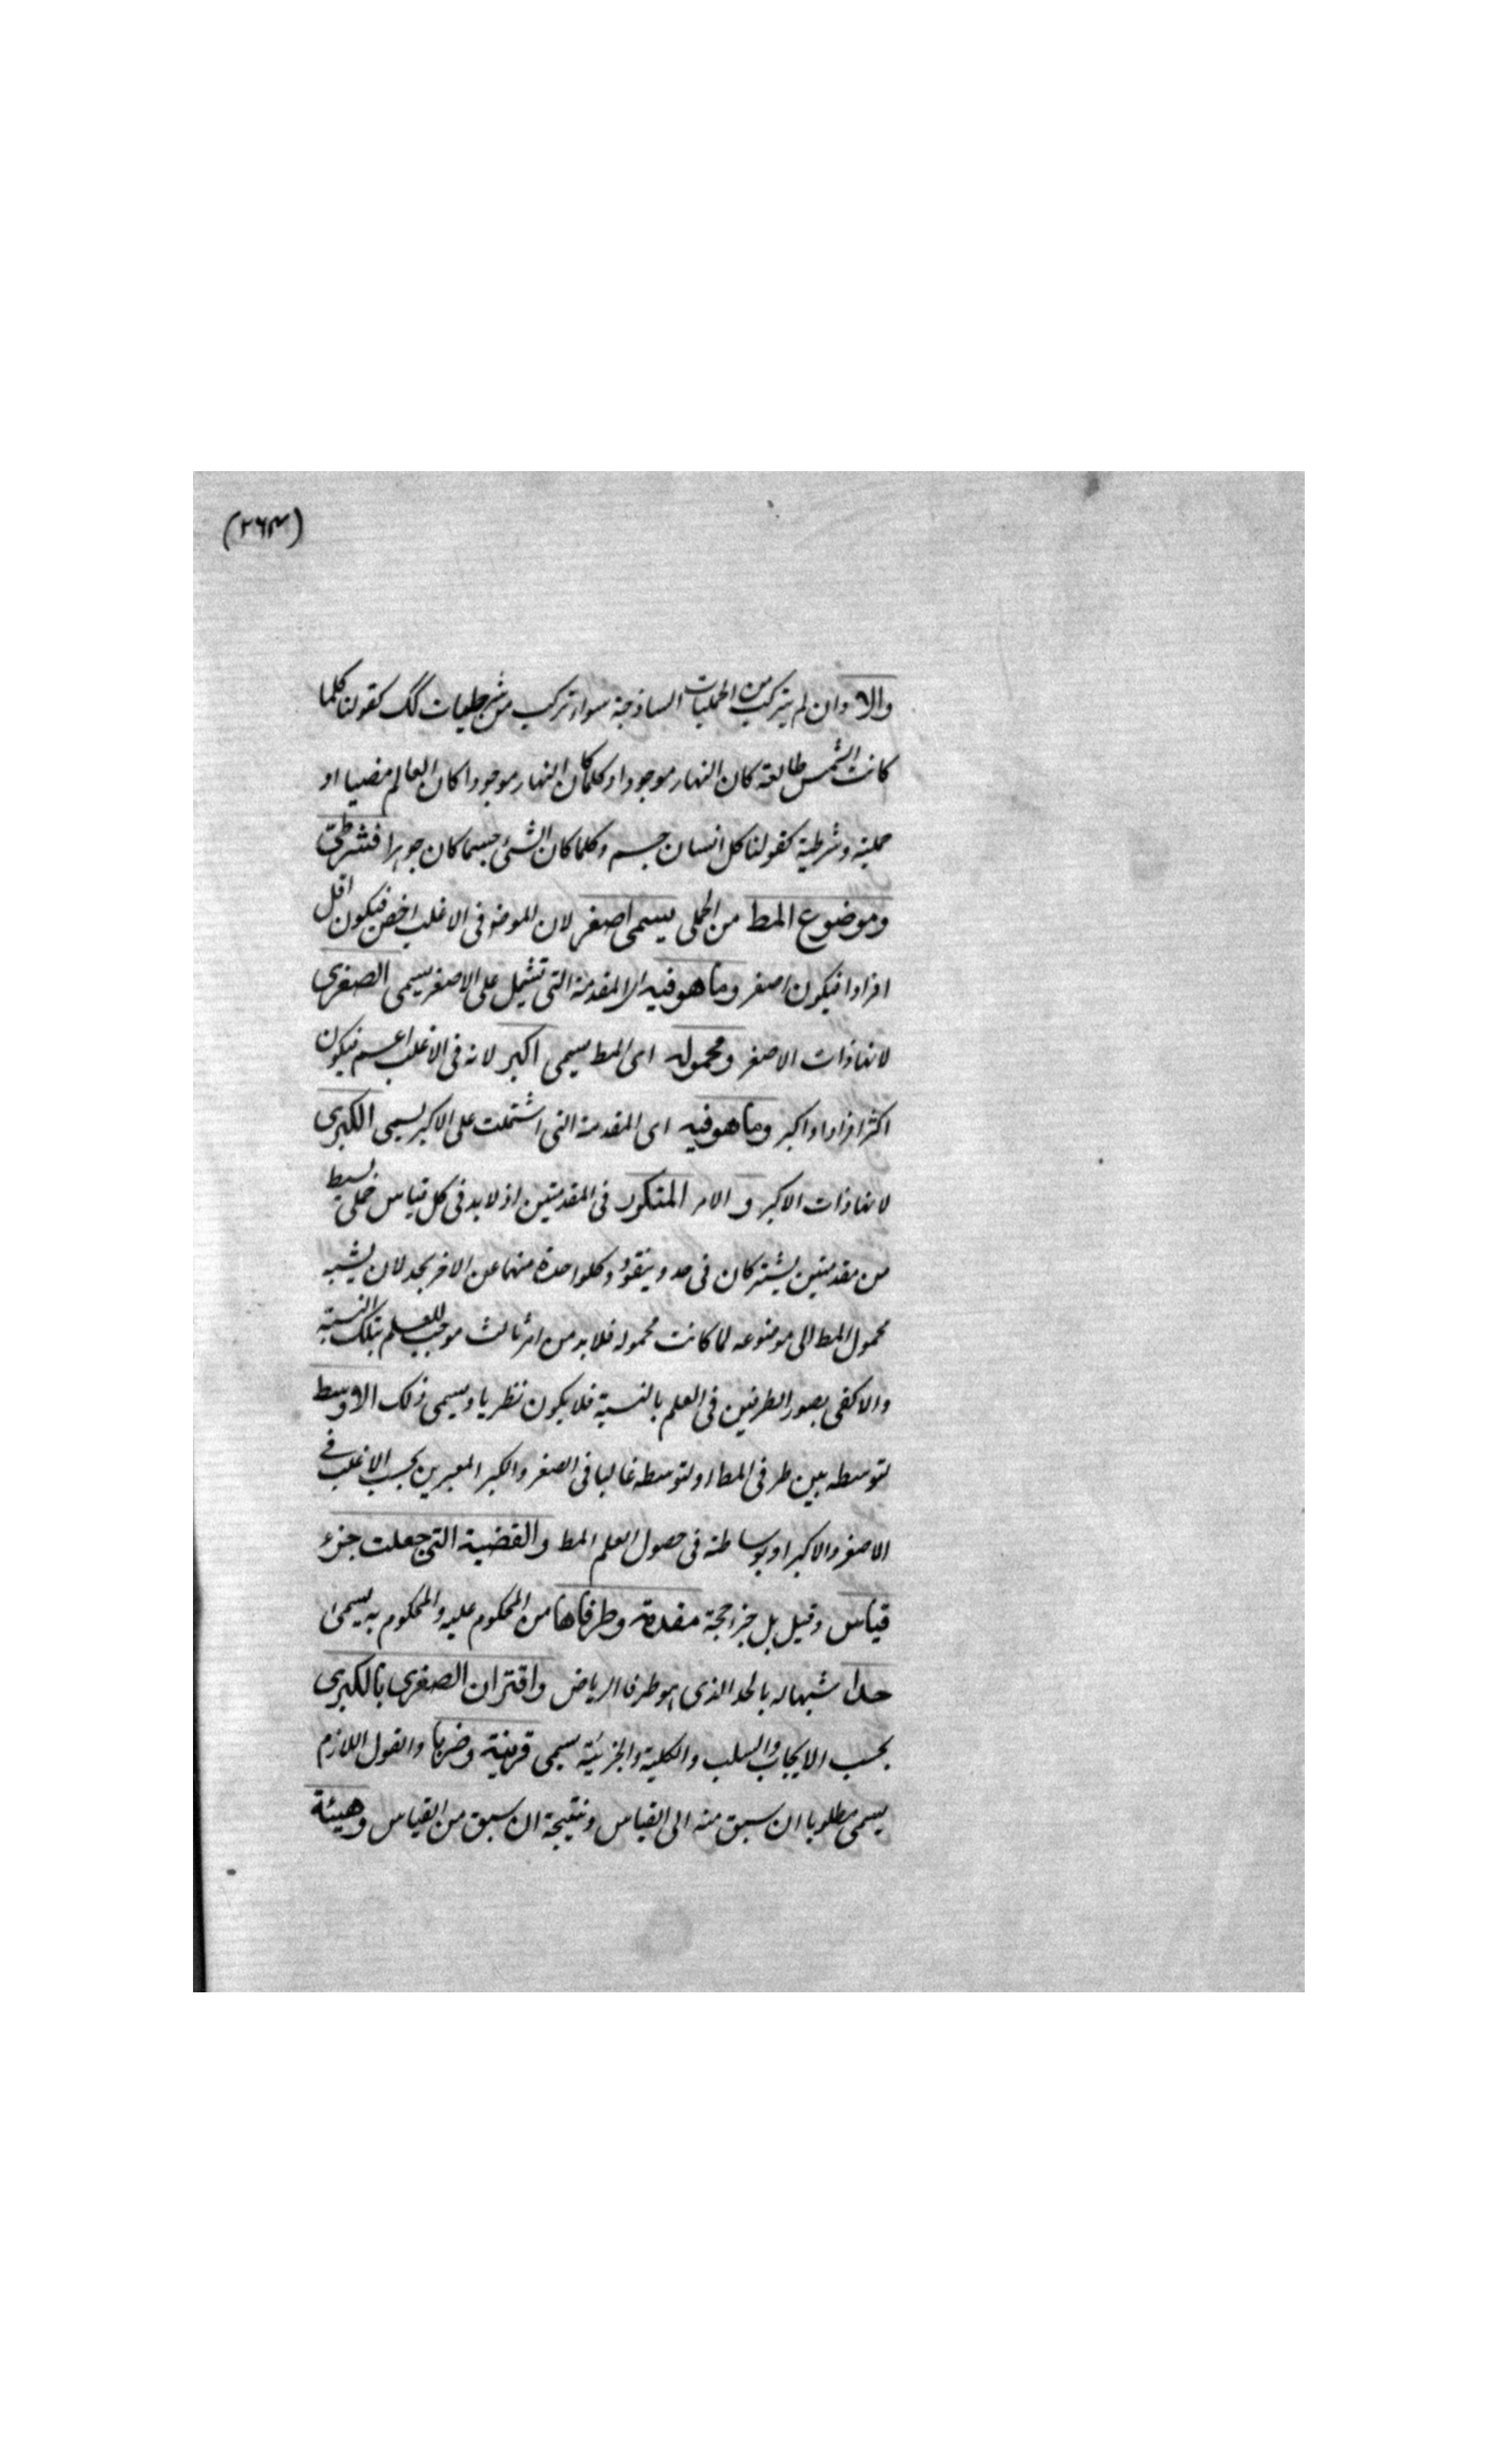 (٢٦٣)
والا وان لم يتركب من الحمليات الساذجة سواء تركب من شرطيات كك كقولنا كلما
كانت الشمس طالعة كان النهار موجودا وكلما كان النهار موجودا كان العالم مضيا او
حملية وشرطية كقولنا كل انسان جسم وكلما كان الشئ جسما كان جوهرا فشرطي
وموضوع المط من الحملى يسمى اصغر لان الموضوع فى الاغلب اخص فيكون اقل
افرادا فيكون اصغر وما هو فيه اى المقدمة التى تشتمل على الاصغر يسمى الصغرى
لانها ذات الاصغر ومحموله اى المط يسمى اكبر لانه فى الاغلب اعم فيكون
اكثر افرادا واكبر وما هو فيه اى المقدمة التى اشتملت على الاكبر يسمى الكبرى
لانها ذات الاكبر و الامر المتكرر فى المقدمتين اذ لا بد فى كل قياس حملى بسيط
من مقدمتين يشتركان فى حد و كل واحدة منهما عن الاخر بحد لان
محمول المط الى موضوعه لما كانت مجهوله فلا بد من امر ثالث موجب للعلم بتلك النسبة
والا كفى تصور الطرفين فى العلم بالنسبة فلا يكون نظريا ويسمى ذلك الاوسط
لتوسطه بين طرفى المط او لتوسطه غالبا فى الصغر والكبر المعبرين بحسب الاغلب فى
الاصغر والاكبر او بوساطته فى حصول العلم المط والقضية التى جعلت جزء
قياس وقيل بل جزء حجة مقدمة وطرفاها من المحكوم عليه والمحكوم به يسمى
حدا شبها له بالحد الذى هو طرف الرياض واقتران الصغرى بالكبرى
بحسب الايجاب والسلب والكلية والجزئية يسمى قرينة وضربا والقول اللازم
يسمى مطلوبا ان سبق منه الى القياس ونتيجة ان سبق من القياس وهيئة